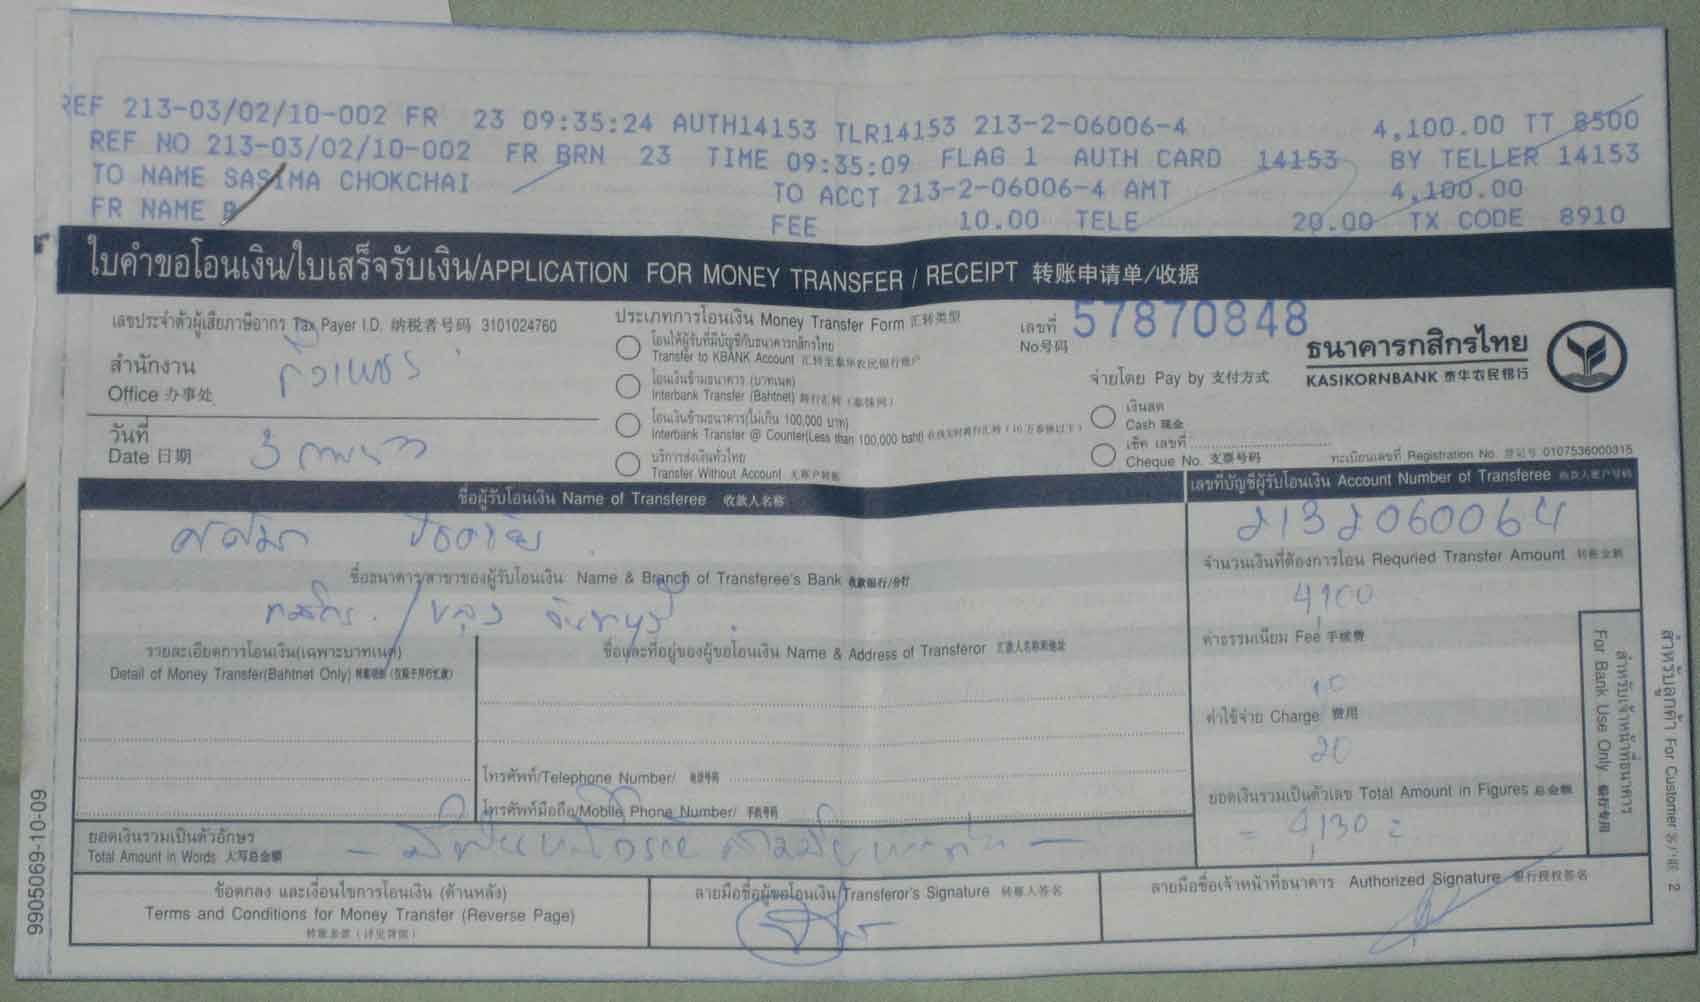 REF 213-03/02/10-002 FR 23 09:35:24 AUTH14153 TLR14153 213-2-06006-4 4,100.00 TT 8500
REF NO 213-03/02/10-002 FR BRN 23 TIME 09:35:09 FLAG 1 AUTH CARD 14153 BY TELLER 14153
TO NAME SASIMA CHOKCHAI TO ACCT 213-2-06006-4 AMT 4,100.00
FR NAME FEE 10.00 TELE 20.00 TX CODE 8910
ใบคำขอโอนเงิน/ใบเสร็จรับเงิน/APPLICATION FOR MONEY TRANSFER / RECEIPT 转账申请单/收据
เลขประจำตัวผู้เสียภาษีอากร Tax Payer I.D. 纳税者号码 3101024760
สำนักงาน
Office 办事处
วันที่
Date 日期 3
ประเภทการโอนเงิน Money Transfer Form 汇转类型
โอนให้ผู้รับที่มีบัญชีกับธนาคารกสิกรไทย
Transfer to KBANK Account 汇转至泰华农民银行账户
โอนเงินข้ามธนาคาร (บาทเนต)
Interbank Transfer (Bahtnet) 跨行汇转 (泰铢网)
โอนเงินข้ามธนาคาร(ไม่เกิน 100,000 บาท)
Interbank Transfer @ Counter(Less than 100,000 baht)
บริการส่งเงินทั่วไทย
Transfer Without Account 无账户转账
เลขที่
No号码 57870848
ธนาคารกสิกรไทย
KASIKORNBANK 泰华农民银行
จ่ายโดย Pay by 支付方式
เงินสด
Cash 现金
เช็ค เลขที่
Cheque No. 支票号码
ทะเบียนเลขที่ Registration No. 登记号 0107536000315
ชื่อผู้รับโอนเงิน Name of Transferee 收款人名称
ศศิมา โชคชัย
เลขที่บัญชีผู้รับโอนเงิน Account Number of Transferee 收款人账户号码
2132060064
ชื่อธนาคาร/สาขาของผู้รับโอนเงิน Name & Branch of Transferee's Bank 收款银行/分行
กสิกร / ขลุง จันทบุรี
จำนวนเงินที่ต้องการโอน Requried Transfer Amount 转账金额
4,100
รายละเอียดการโอนเงิน(เฉพาะบาทเนต)
Detail of Money Transfer(Bahtnet Only)
ชื่อและที่อยู่ของผู้ขอโอนเงิน Name & Address of Transferor 汇款人名称和地址
โทรศัพท์/Telephone Number/ 电话号码
โทรศัพท์มือถือ/Mobile Phone Number/ 手机号码
ค่าธรรมเนียม Fee 手续费
10
ค่าใช้จ่าย Charge 费用
20
ยอดเงินรวมเป็นตัวเลข Total Amount in Figures 总金额
= 4,130 =
ยอดเงินรวมเป็นตัวอักษร
Total Amount in Words 大写总金额
- สี่พันหนึ่งร้อยสามสิบบาทถ้วน -
ข้อตกลง และเงื่อนไขการโอนเงิน (ด้านหลัง)
Terms and Conditions for Money Transfer (Reverse Page)
转账条款 (详见背面)
ลายมือชื่อผู้ขอโอนเงิน/Transferor's Signature 转账人签名
ลายมือชื่อเจ้าหน้าที่ธนาคาร Authorized Signature 银行授权签名
สำหรับเจ้าหน้าที่ธนาคาร
For Bank Use Only 银行专用
สำหรับลูกค้า For Customer 客户联 2
9905069-10-09